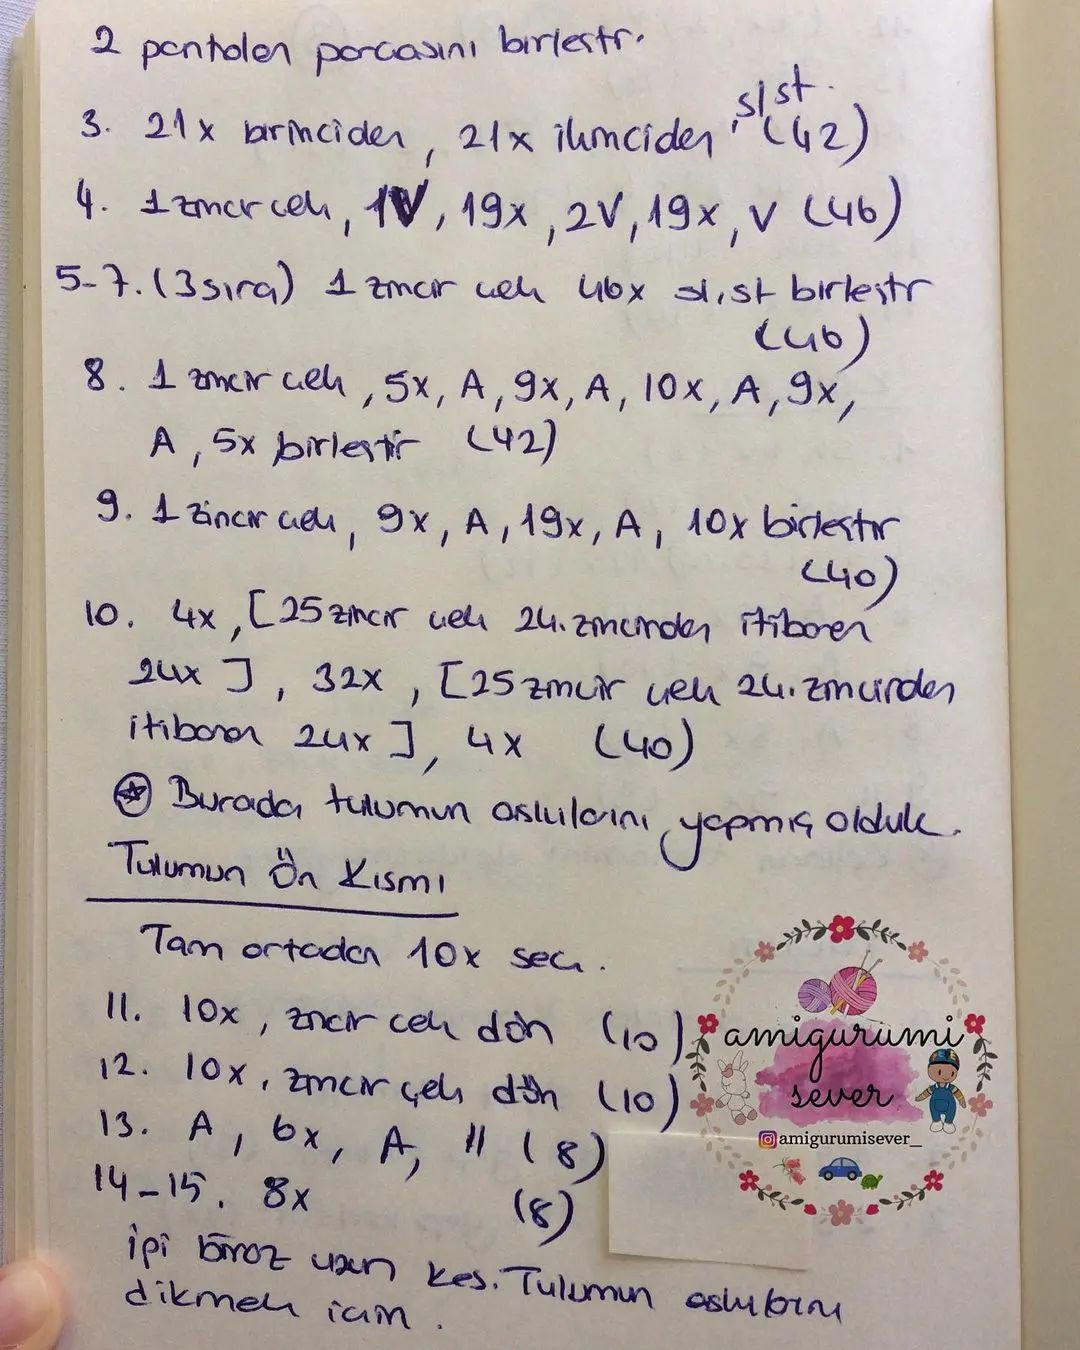 2 pantolon parçasını birleştr.
3. 21x birinciden, 21x ikinciden, sl st. (42)
4. 1 zincir çek, 1V, 19x, 2V, 19x, V (46)
5-7. (3 sıra) 1 zincir çek 46x sl.st birleştr
(46)
8. 1 zincir çek, 5x, A, 9x, A, 10x, A, 9x,
A, 5x birleştir (42)
9. 1 zincir çek, 9x, A, 19x, A, 10x birleştir
(40)
10. 4x, [25 zincir çek 24. zincirden itibaren
24x], 32x, [25 zincir çek 24. zincirden
itibaren 24x], 4x (40)
Burada tulumun askılarını yapmış olduk.
Tulumun Ön Kısmı
Tam ortadan 10x seç.
11. 10x, zincir çek dön (10)
12. 10x, zincir çek dön (10)
13. A, 6x, A, " (8)
14-15. 8x (8)
ipi biraz uzun kes. Tulumun askılarını
dikmek için.
amigurumi
sever
@amigurumisever_